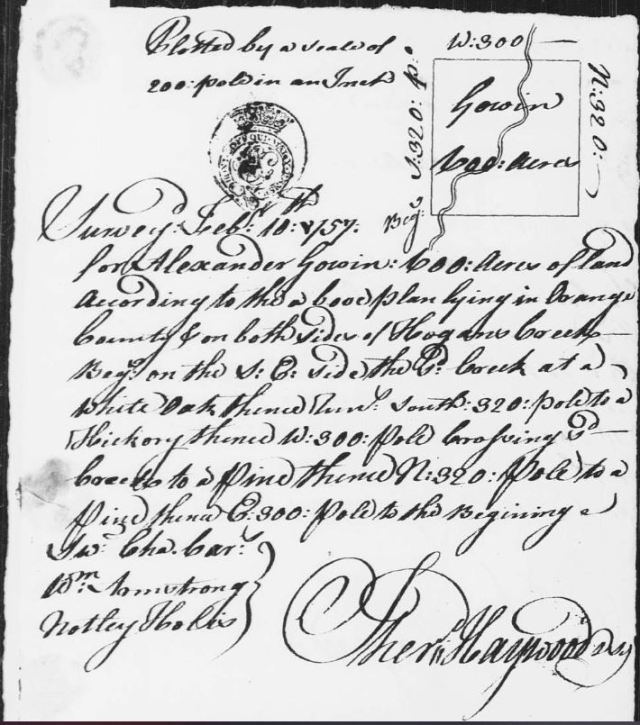 Plotted by a scale of
200: pole in an Inch
W: 300
S: 320: p:
N: 320:
Gowin
600: Acres
Beg:
Survey'd Feb: 10:th 1757:
for Alexander Gowin: 600: Acres of land
According to the a bove plan lying in Orange
County & on both sides of Hogans Creek
Beg: on the S: E: side the sd: Creek at a
White Oak thence Run: South: 320: pole to a
Hickory thence W: 300: Pole Crossing sd
Creek to a Pine thence N: 320: Pole to a
Pine thence E: 300: Pole to the Begining
Sw: Cha. Car:
Wm Armstrong
Notley Hollis
Sher: Haywood